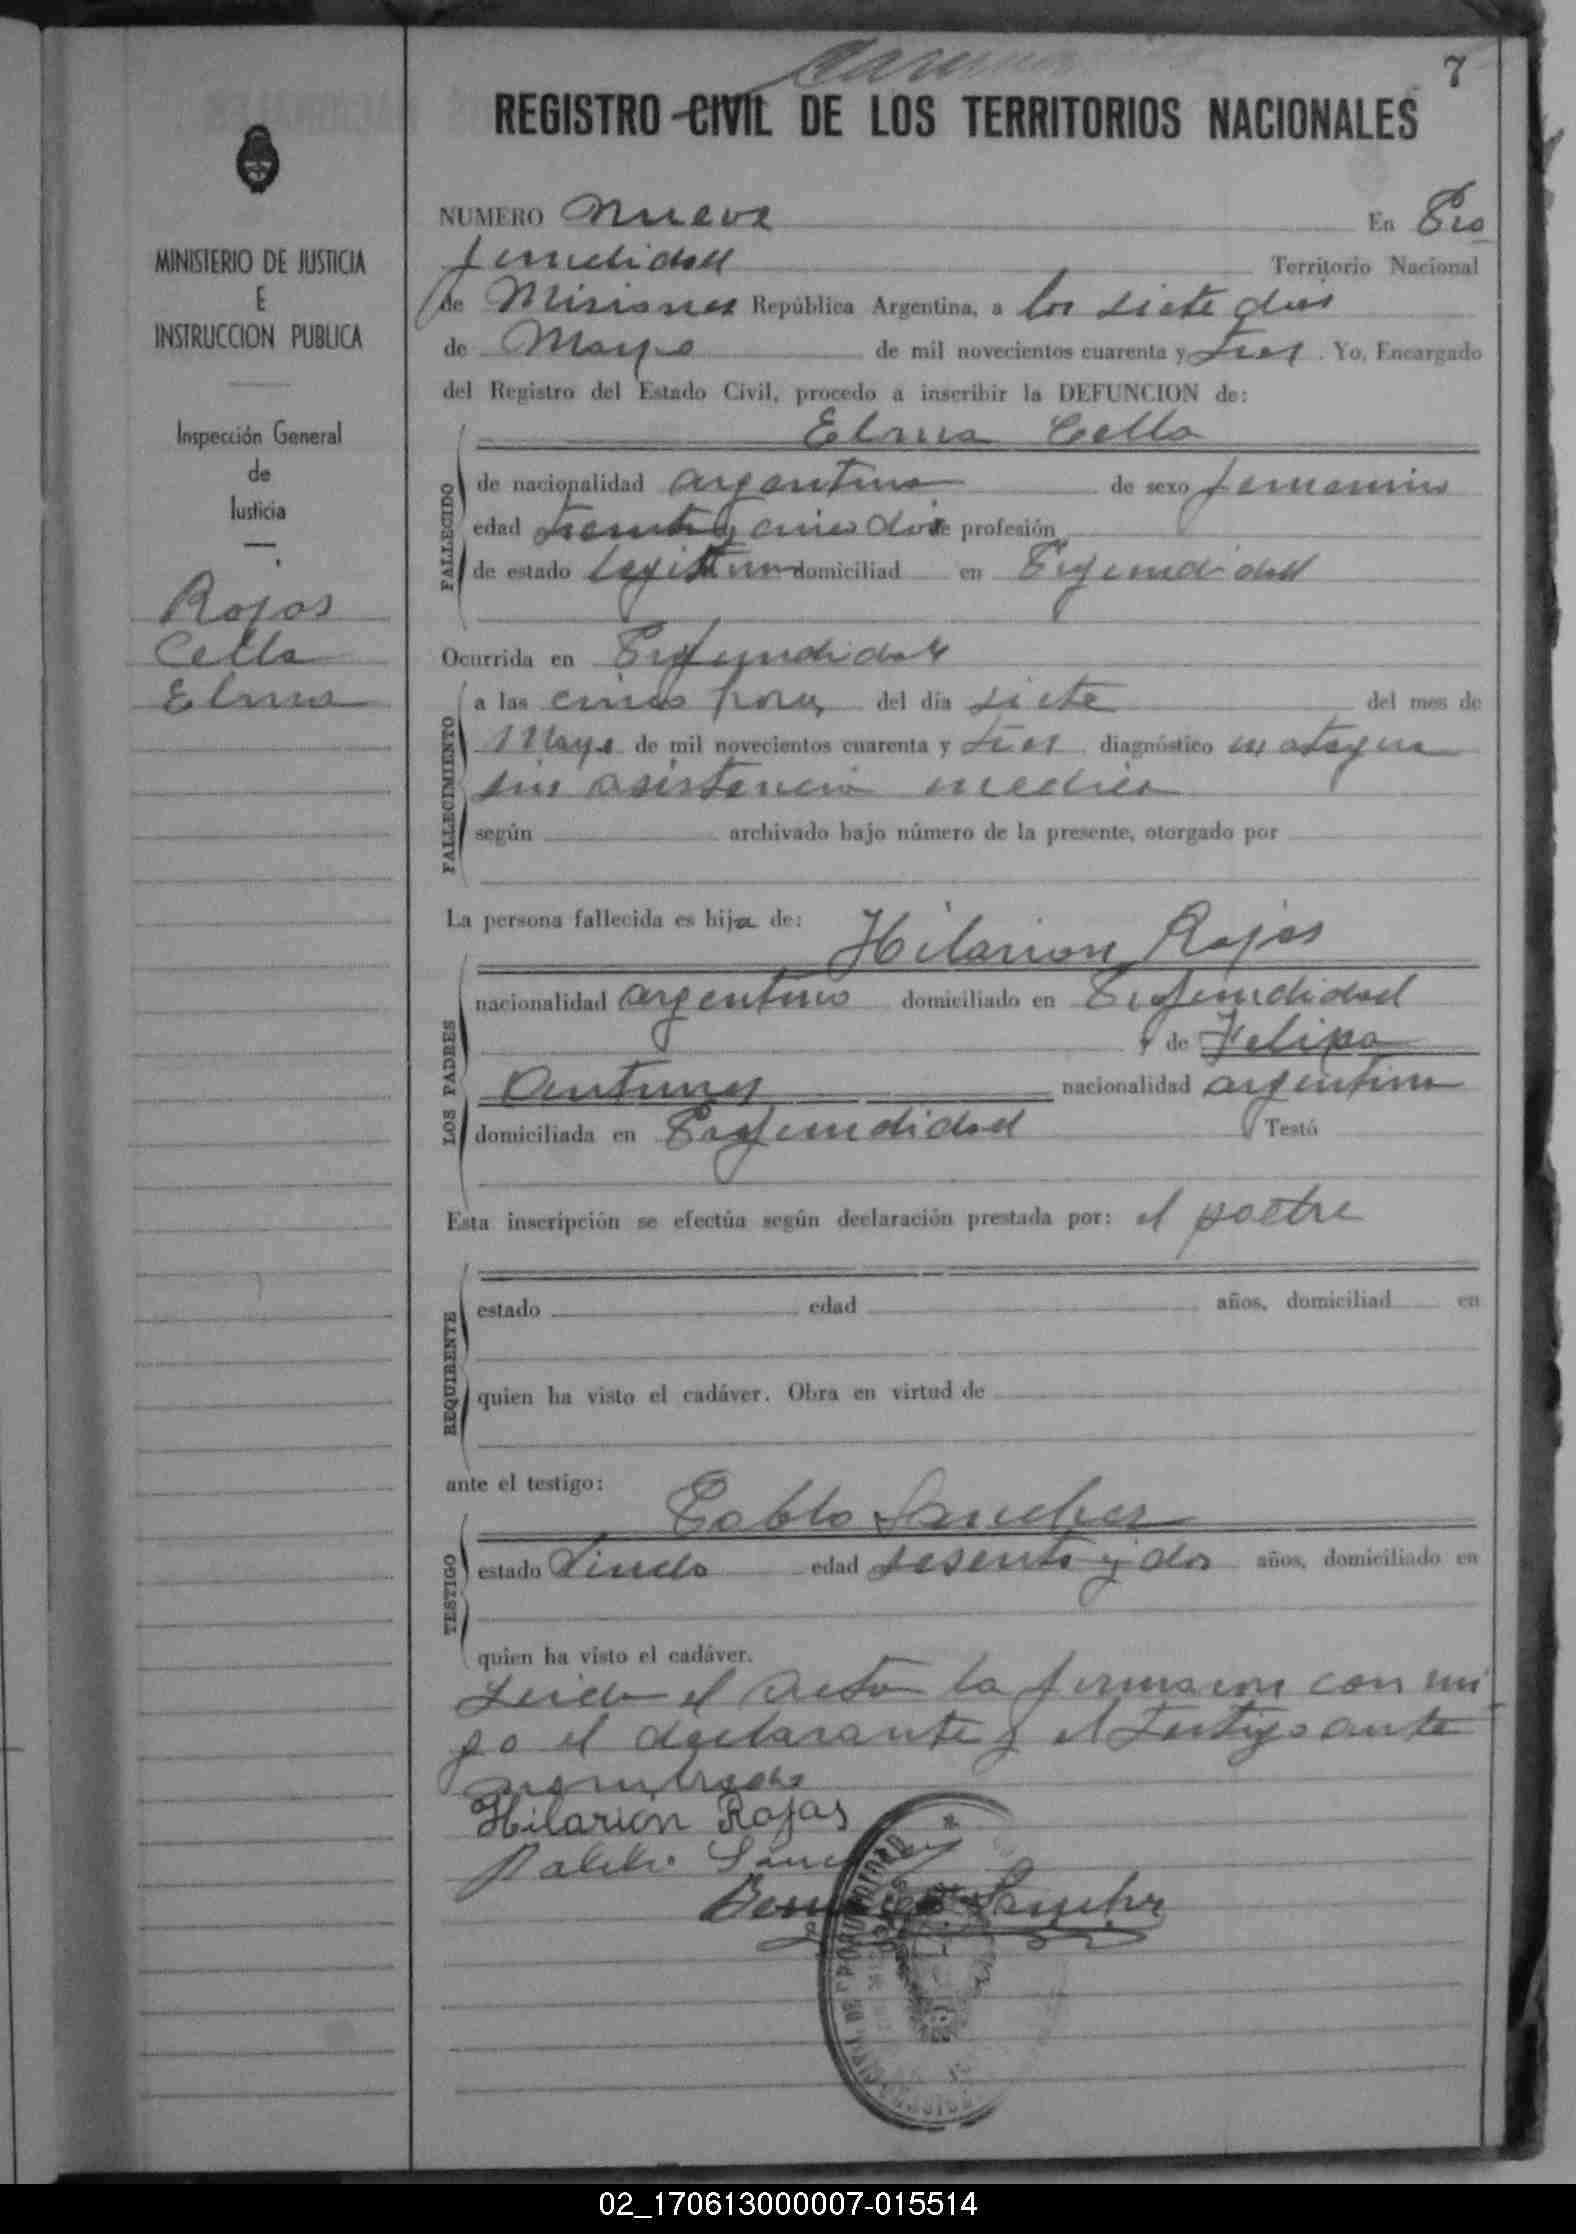 7
REGISTRO CIVIL DE LOS TERRITORIOS NACIONALES
MINISTERIO DE JUSTICIA
E
INSTRUCCION PUBLICA
Inspección General
de
Justicia
Rojas
Cella
Elma
NUMERO Nueve En Pro
fundidad Territorio Nacional
de Misiones República Argentina, a los siete dias
de Mayo de mil novecientos cuarenta y tres. Yo, Encargado
del Registro del Estado Civil, procedo a inscribir la DEFUNCION de:
Elma Cella
FALLECIDO
de nacionalidad argentina de sexo femenino
edad treinta y cinco dias de profesión
de estado domiciliad en Profundidad
Ocurrida en Profundidad
FALLECIMIENTO
a las cinco horas del día siete del mes de
Mayo de mil novecientos cuarenta y tres diagnóstico
sin asistencia medica
según archivado bajo número de la presente, otorgado por
La persona fallecida es hija de:
Hilarion Rojas
LOS PADRES
nacionalidad argentino domiciliado en Profundidad
y de Felipa
Antunes nacionalidad argentina
domiciliada en Profundidad Testó
Esta inscripción se efectúa según declaración prestada por: el padre
REQUIRENTE
estado edad años, domiciliad en
quien ha visto el cadáver. Obra en virtud de
ante el testigo:
Pablo Sanches
TESTIGO
estado Viudo edad sesenta y dos años, domiciliado en
quien ha visto el cadáver.
Leida el acta la firmaron con mi
go el declarante y el testigo ante
nombrados
Hilarion Rojas
Pablo
Sanchez
02_170613000007-015514